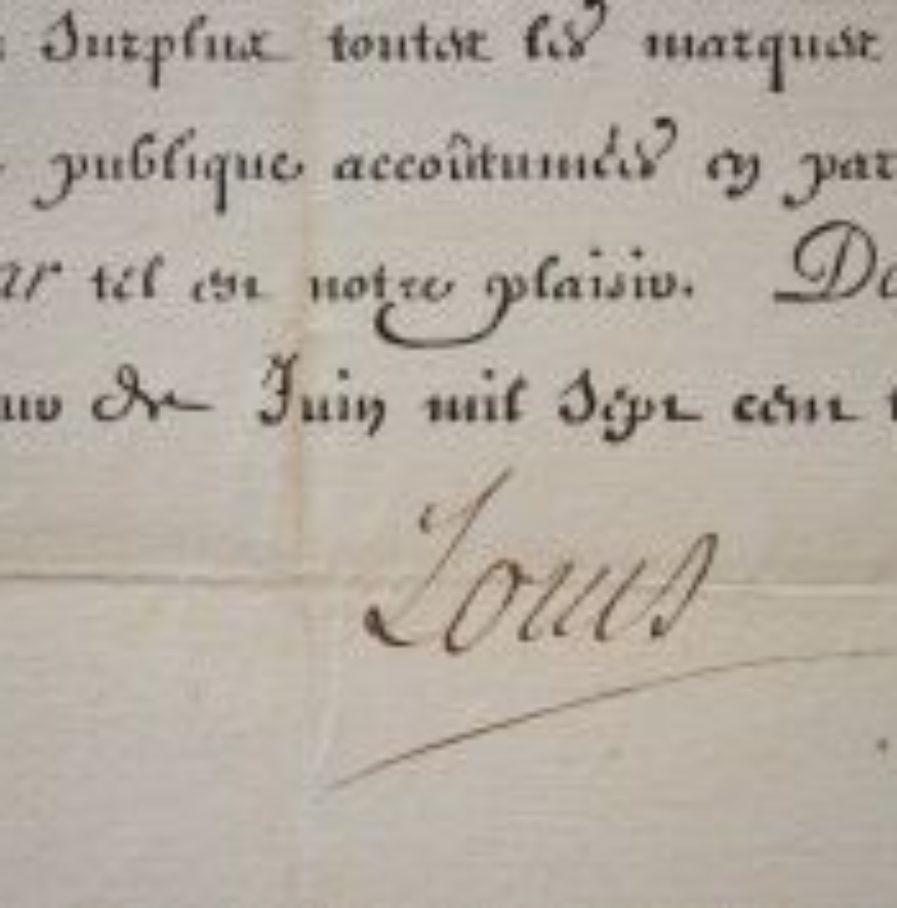 Surplus toutes les marques
publique accoûtumées en par
car tél est notre plaisir. Do
de Juin mil sépt cént
Louis